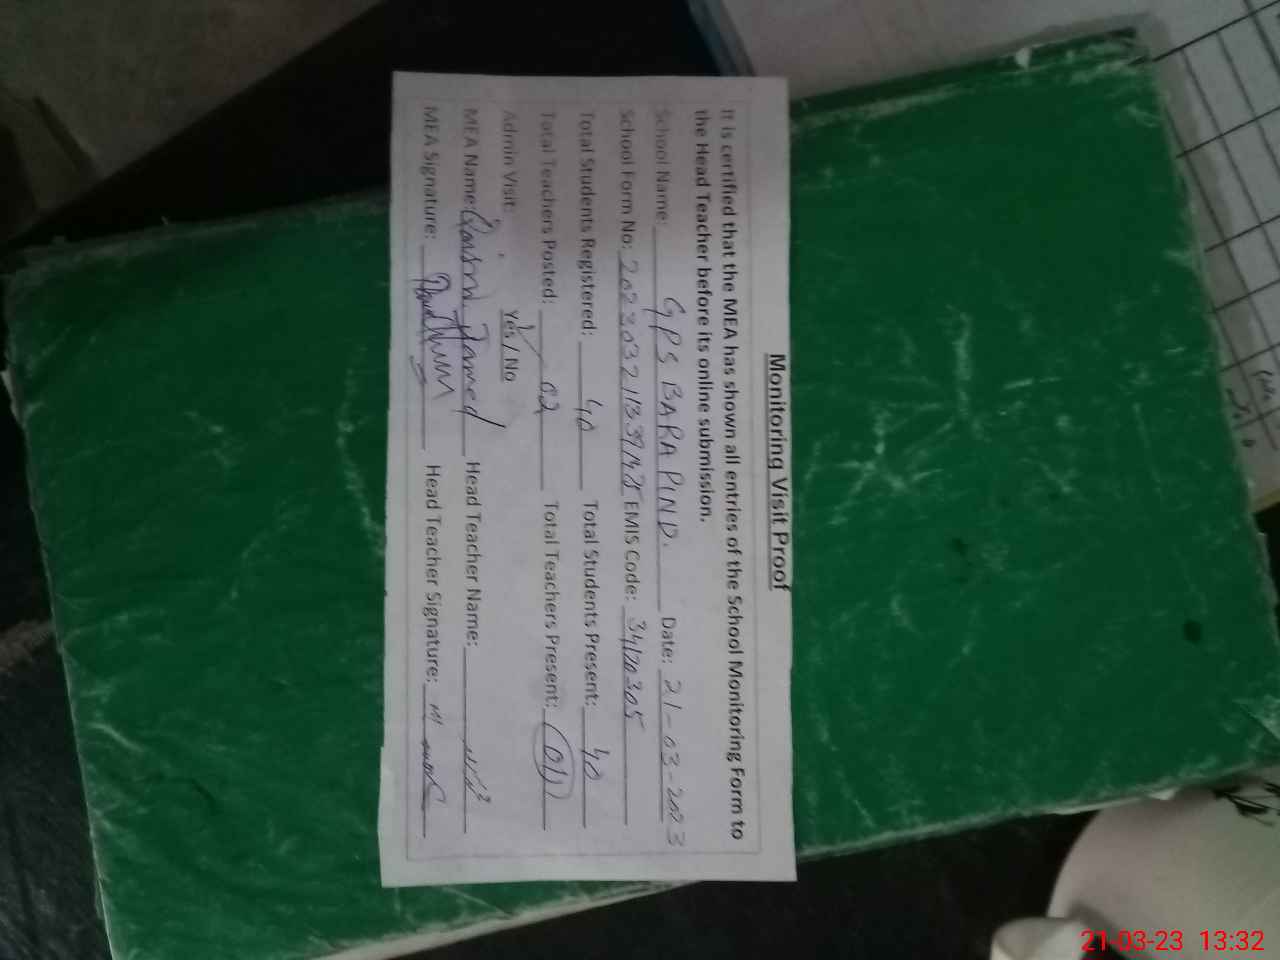 Monitoring Visit Proof
It is certified that the MEA has shown all entries of the School Monitoring Form to
the Head Teacher before its online submission.
School Name: GPS BARA PIND. Date: 21-03-2023
School Form No: EMIS Code: 34120305
Total Students Registered: 40 Total Students Present: 40
Total Teachers Posted: 02 Total Teachers Present: 01
Admin Visit: Yes / No
MEA Name: Head Teacher Name:
MEA Signature: Head Teacher Signature:
21-03-23 13:32